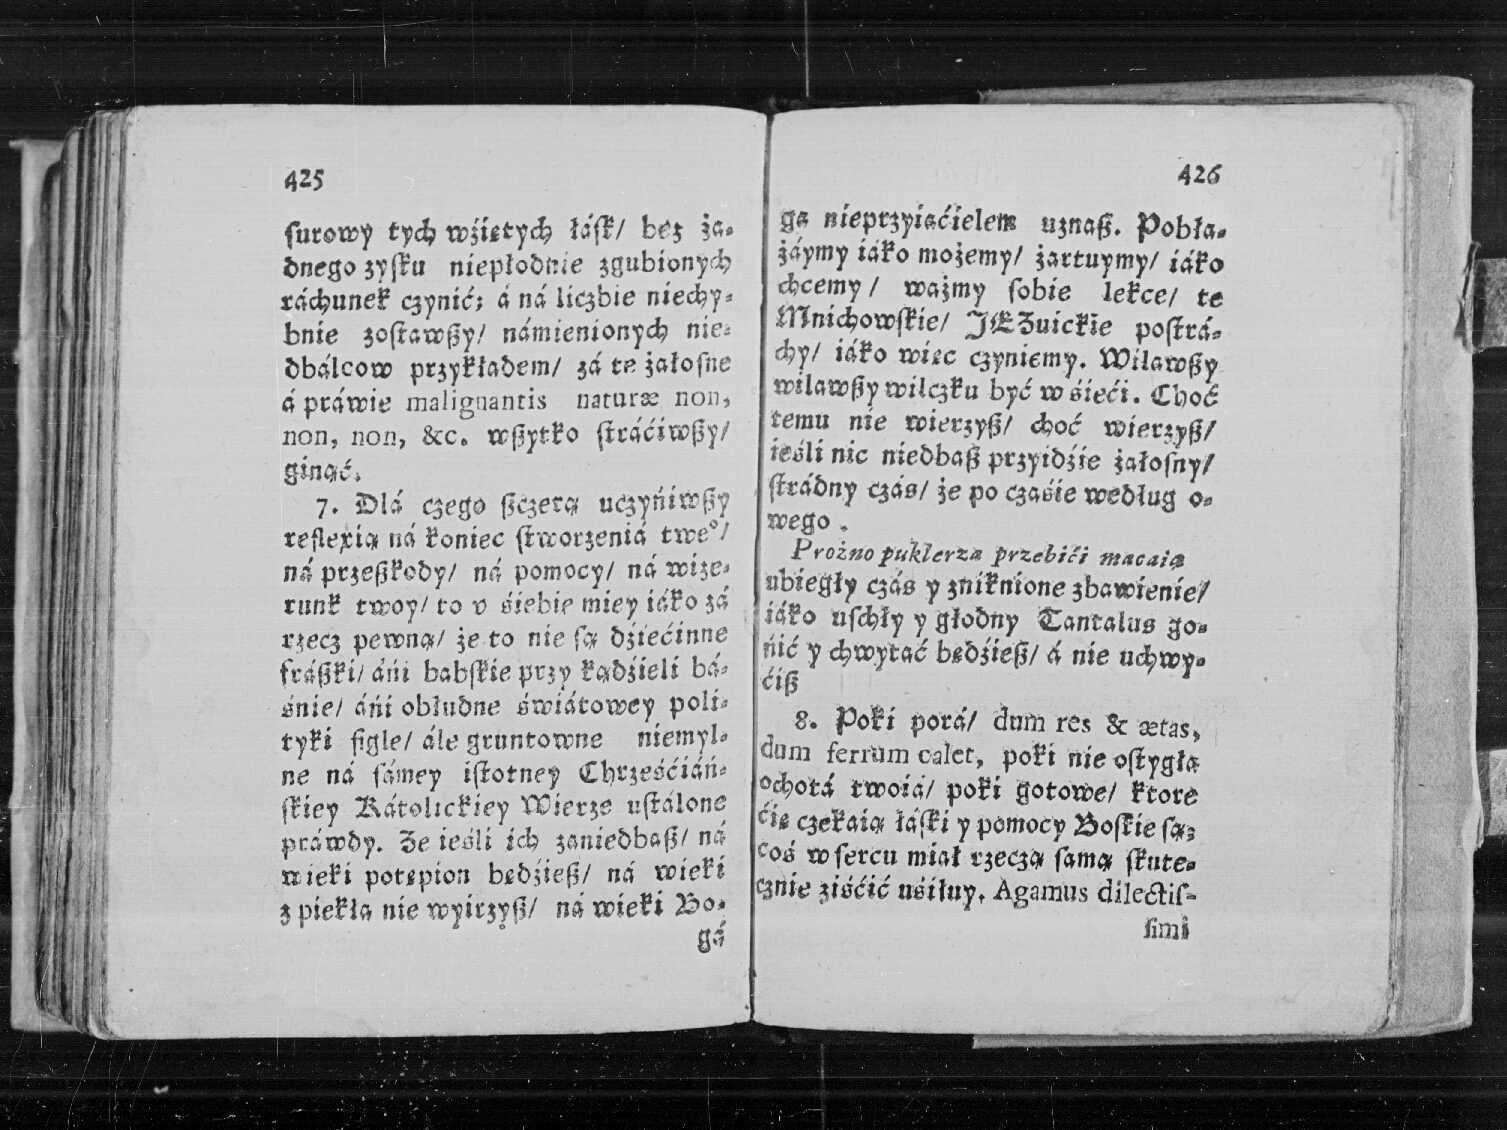 425
surowy tych wźiętych łásk/ bez ża-
dnego zysku niepłodnie zgubionych
ráchunek czynić; á ná liczbie niechy-
bnie zostawszy/ námienionych nie-
dbálcow przykładem/ zá te żałosne
á práwie malignantis naturæ non,
non, non, &c. wszytko stráćiwszy/
ginąć.
7. Dlá czego szczerą uczyńiwszy
reflexią ná koniec stworzeniá twe°/
ná przeszkody/ ná pomocy/ ná wize-
runk twoy/ to v śiebie miey iáko zá
rzecz pewną/ że to nie są dźiećinne
frászki/ áńi babskie przy kądźieli bá-
śnie/ áńi obłudne świátowey poli-
tyki figle/ ále gruntowne niemyl-
ne ná sámey istotney Chrześćiáń-
skiey Kátolickiey Wierze ustálone
práwdy. Że ieśli ich zaniedbasz/ ná
wieki potępion będźiesz/ ná wieki
z piekła nie wyirzysz/ ná wieki Bo-
gá
426
ga nieprzyiaćielem uznasz. Pobła-
żáymy iáko możemy/ żartuymy/ iáko
chcemy/ ważmy sobie lekce/ te
Mnichowskie/ JEZuickie postrá-
chy/ iáko więc czyniemy. Wilawszy
wilawszy wilczku być w śieći. Choć
temu nie wierzysz/ choć wierzysz/
ieśli nic niedbasz przyidźie żałosny/
strádny czás/ że po czaśie według o-
wego.
Prożno puklerza przebići macaią
ubiegły czás y zniknione zbawienie/
iáko uschły y głodny Tantalus go-
ńić y chwytać będźiesz/ á nie uchwy-
ćisz
8. Poki porá/ dum res & ætas,
dum ferrum calet, poki nie ostygła
ochotá twoiá/ poki gotowe/ ktore
ćię czekaią łáski y pomocy Boskie są;
coś w sercu miał rzeczą samą skute-
cznie ziśćić uśiłuy. Agamus dilectis-
simi